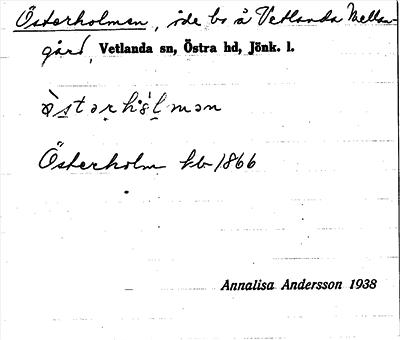 Österholmen, öde bs å Vetlanda Mellan-
gård, Vetlanda sn, Östra hd, Jönk. l.
Österholm kb 1866
Annalisa Andersson 1938